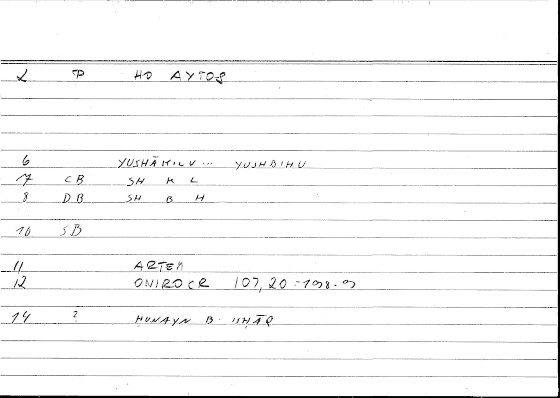 2 P HO AYTOS
6 YUSHĀKILU ... YUSHBIHU
7 CB SH K L
8 DB SH B H
10 SB
11 ARTEM
12 ONIROCR 107,20 = 198.9
14 ? ḤUNAYN B. ISḤĀQ